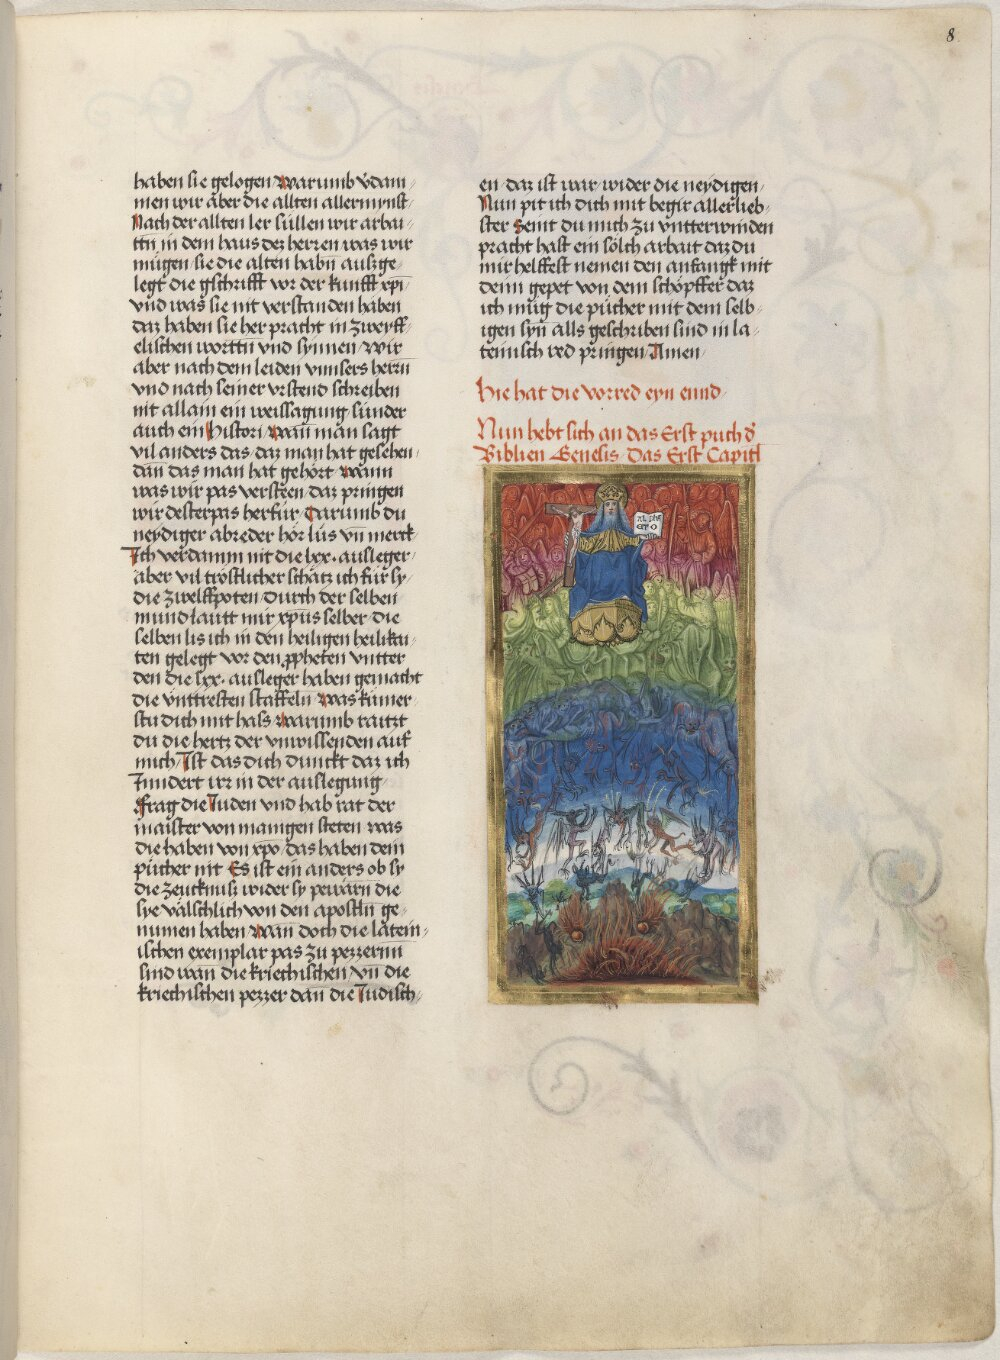 8
haben sie gelogen warumb v̈dam⸗
men wir aber die allten allermynst⸗
Nach der allten ler süllen wir arbai⸗
ttn in dem haus dez herren was wir
mügen sie die alten habn̄ auszge⸗
legt die gschrifft vor der kunfft xp̄i
vnd was sie nit verstanden haben
daz haben sie her pracht in zweyff⸗
elischen worttn̄ vnd synnen wir
aber nach dem leiden vnnsers herrn̄
vnd nach seiner vrstend schreiben
nit allain ein weissagung sunder
auch ein histori wan̄ man sagt
vil anders das daz man hat gesehen
dan̄ das man hat gehört wann
was wir pas versteen daz pringen
wir desterpas herfür darumb du
neydiger abreder hör lus vn̄ merck
Ich verdamm nit die lxx. ausleger⸗
aber vil tröstlicher schätz ich für sy⸗
die zwelffpoten durch der selben
mund lautt mir xp̄us selber die
selben lis ich in den heiligen heilikai⸗
ten gelegt vor den ꝓpheten vntter
den die lxx. ausleger haben gemacht
die vnttresten staffeln was kümer⸗
stu dich mit hass warumb raitzt
du die hertz der vnwissenden auf
mich Ist das dich dunckt daz ich
Inndert irr in der auslegung
Frag die Iuden vnd hab rat der
maister von manigen steten was
die haben von xp̄o das haben dein
pücher nit Es ist ein anders ob sy
die zeucknus wider sy pewärn die
sye välschlich von den apostln̄ ge⸗
numen haben wan doch die latein⸗
ischen exemplar pas zu pezzernn
sind wan die kriechischen vn̄ die
kriechischen pezzer dan̄ die Iudisch⸗
en daz ist war wider die neydigen
Nun pit ich dich mit begir allerlieb⸗
ster Seint du mich zu vntterwinden
pracht hast ein sölch arbait daz du
mir helffest nemen den anfangk mit
deim gepet von dem schöpffer daz
ich müg die pücher mit dem selb⸗
igen syn̄ alls geschriben sind in la⸗
teinisch red pringen Amen
Hie hat die vorred eyn ennd
Nun hebt sich an das Erst puch d̄
Biblien Genesis Das Erst Capitl
ET O